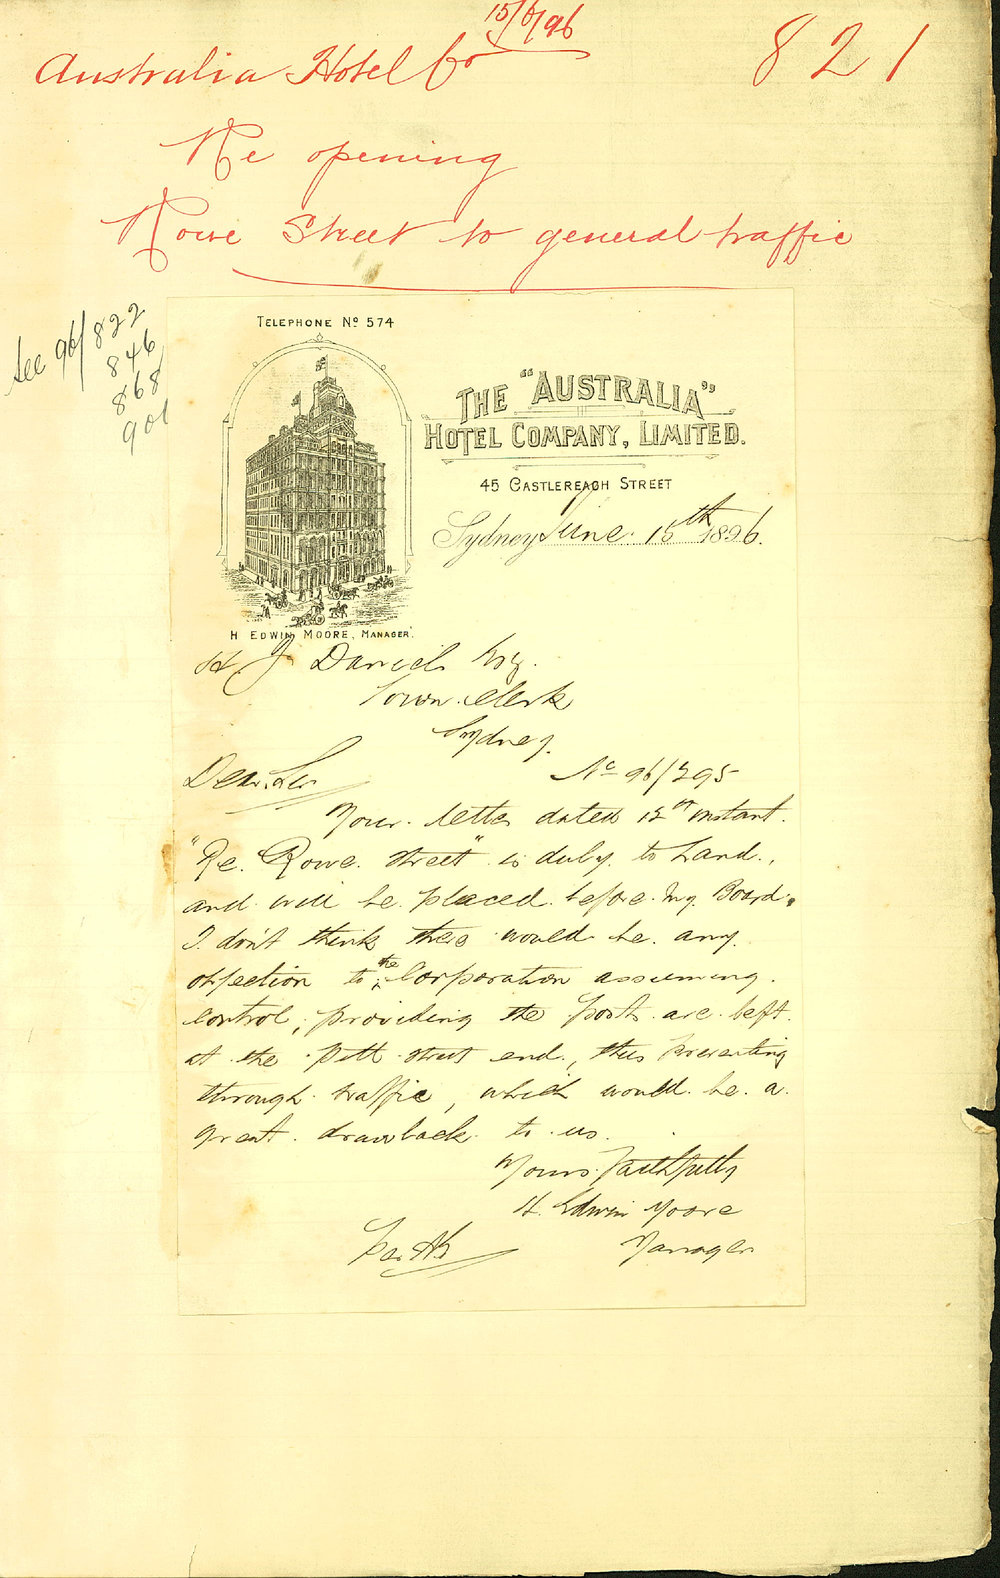 15/6/96
Australia Hotel Co
821
Re opening
Rowe Street to general traffic
See 96/822
846
868
901
TELEPHONE No 574
THE "AUSTRALIA"
HOTEL COMPANY, LIMITED.
45 CASTLEREAGH STREET
Sydney June 15th 1896.
H EDWIN MOORE, MANAGER.
H. J. Daniel Esq.
Town Clerk
Sydney.
Dear Sir
No 96/295
Your letter dated 12th instant.
"Re. Rowe Street" is duly to hand,
and will be placed before my Board.
I don't think there would be any
objection to the Corporation assuming
control, providing the posts are left
at the Pitt Street end, thus preventing
through traffic, which would be a
great drawback to us.
Yours Faithfully
H. Edwin Moore
Manager